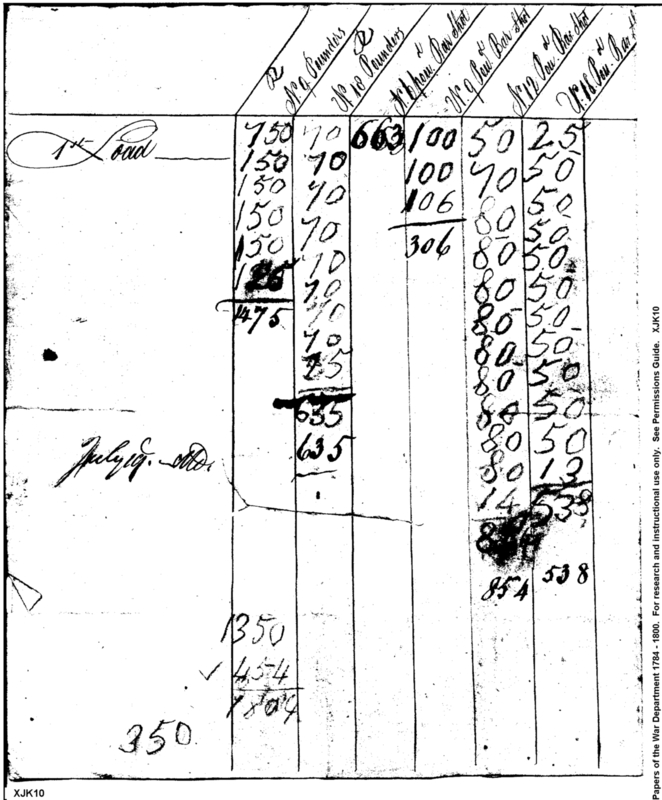 Nº 9 Pounders
Nº 18 Pounders
Nº 6 poun Bar Shot
Nº 9 Poun Bar Shot
Nº 12 Pou. Bar Shot
Nº 18 Pou. Bar
1st Load 750 70 663 100 50 25
150 70 100 70 50
150 70 106 80 50
150 70 306 80 50
150 70 80 50
125 70 80 50
1475 70 80 50
70 80 50
75 80 50
635 80 50
635 80 50
80 13
14 538
854 538
1350
454
1804
350
XJK10
Papers of the War Department 1784 - 1800. For research and instructional use only. See Permissions Guide. XJK10